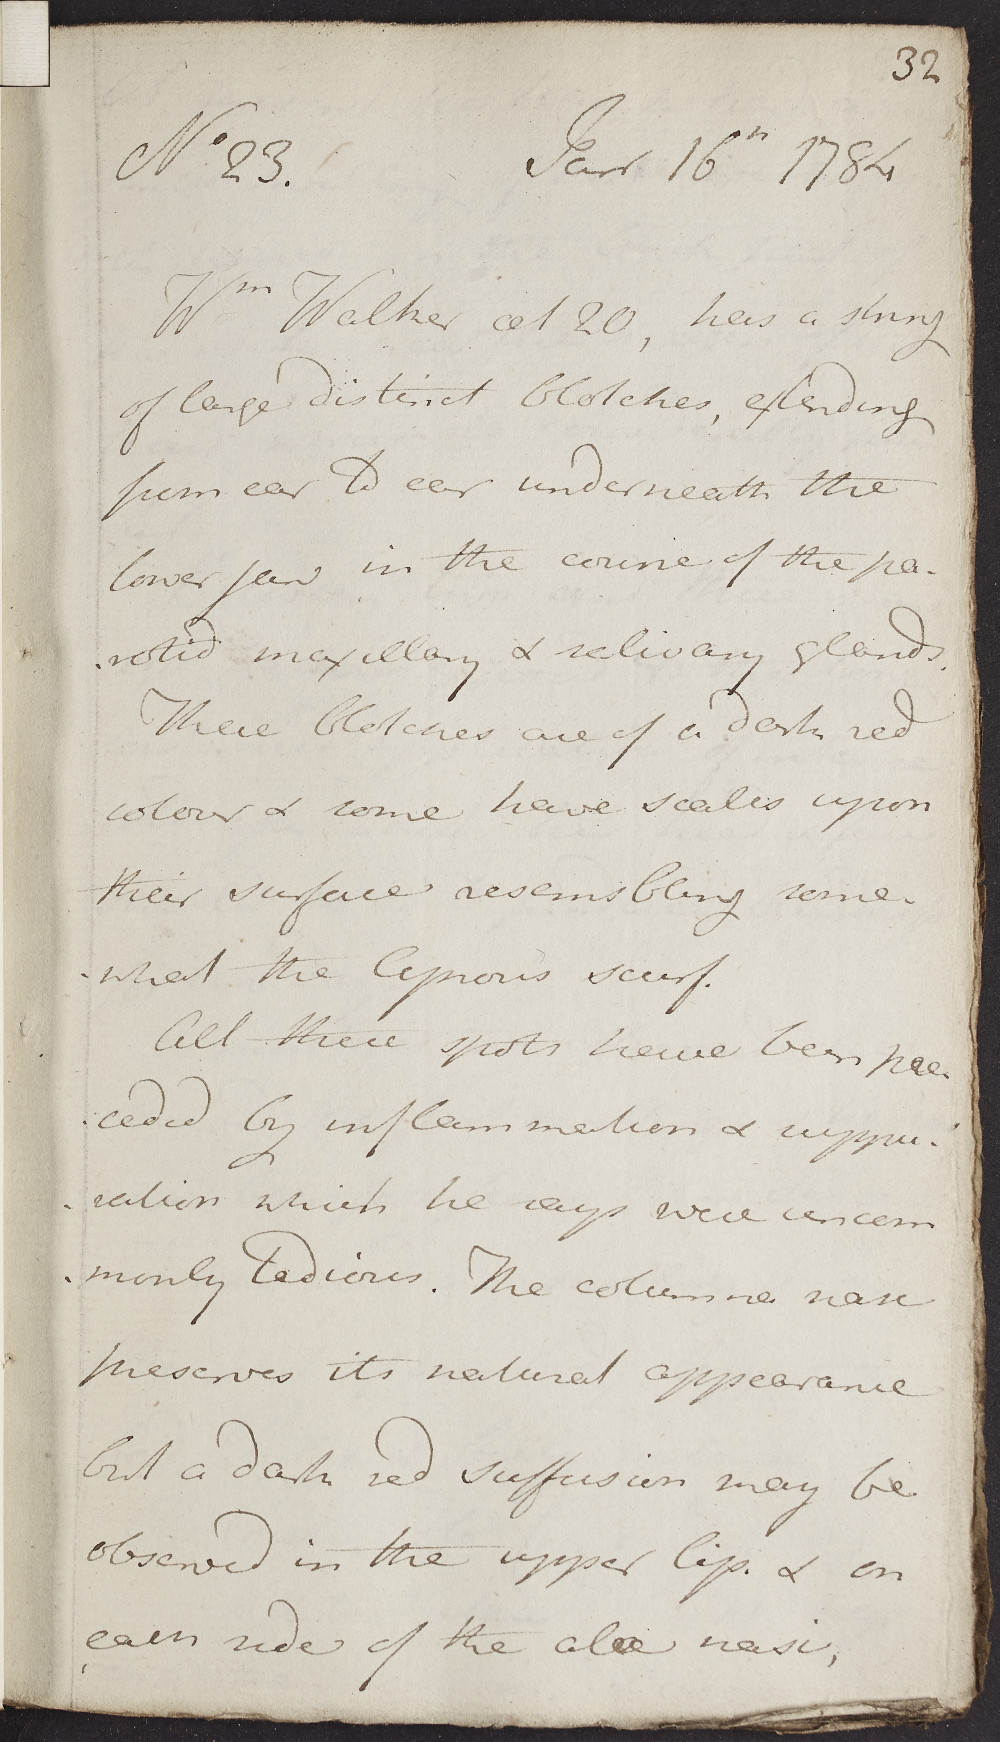 32
No 23. Janr 16th 1784
Wm Walker aet 20, has a string
of large distinct blotches, extending
from ear to ear underneath the
lower jaw in the course of the pa-
-rotid maxillary & salivary glands.
These blotches are of a dark red
colour & some have scales upon
their surface resembling some-
-what the leprous scurf.
All these spots have been pre-
-ceded by inflammation & suppu-
-ration which he says were uncom
-monly tedious. The columna nasi
preserves its natural appearance
but a dark red suffusion may be
observed in the upper lip. & on
each side of the alae nasi,